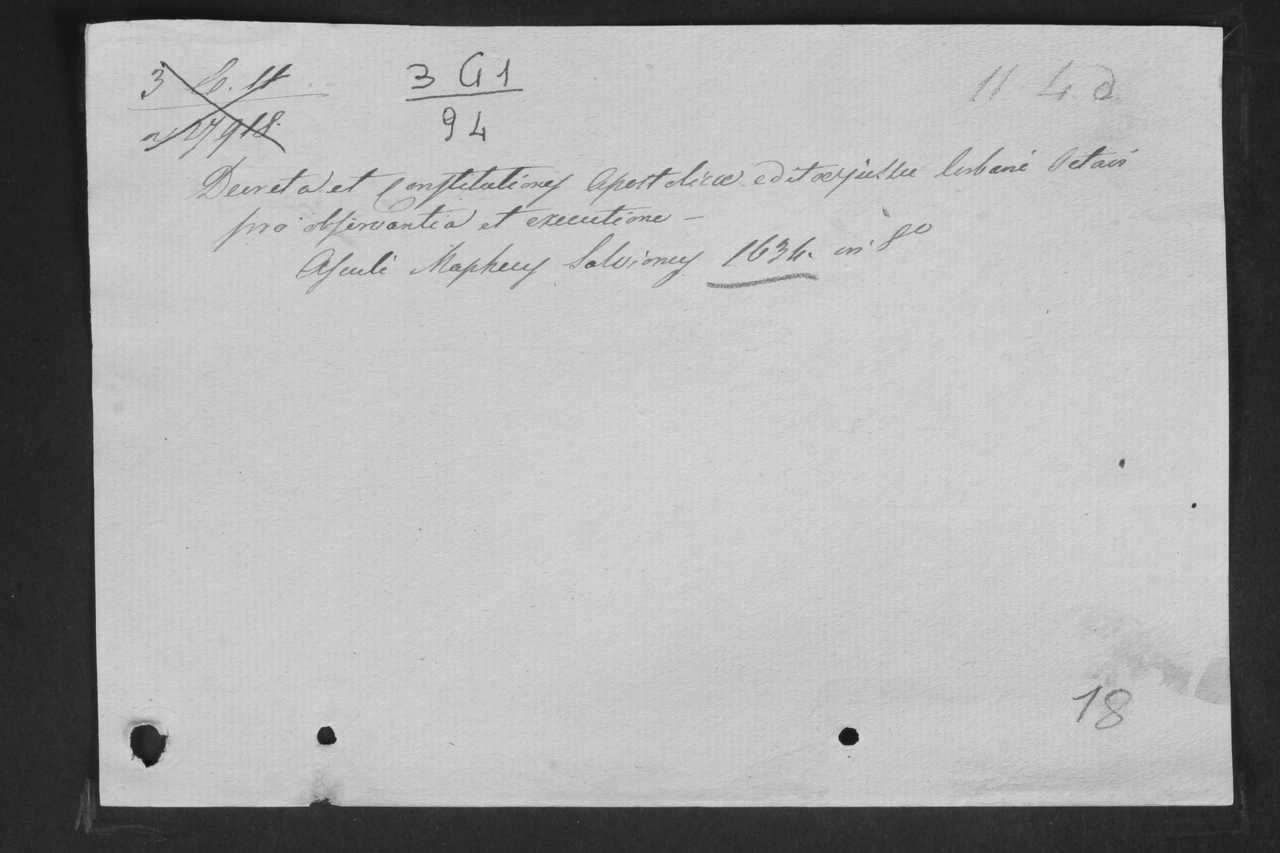 3 G 1
94
11 4 d
Decreta et Constitutiones Apostolicæ editæ jussu Urbani Octavi
pro observantia et executione –
Asculi Mapheus Salvioneus 1634. in 8º
18